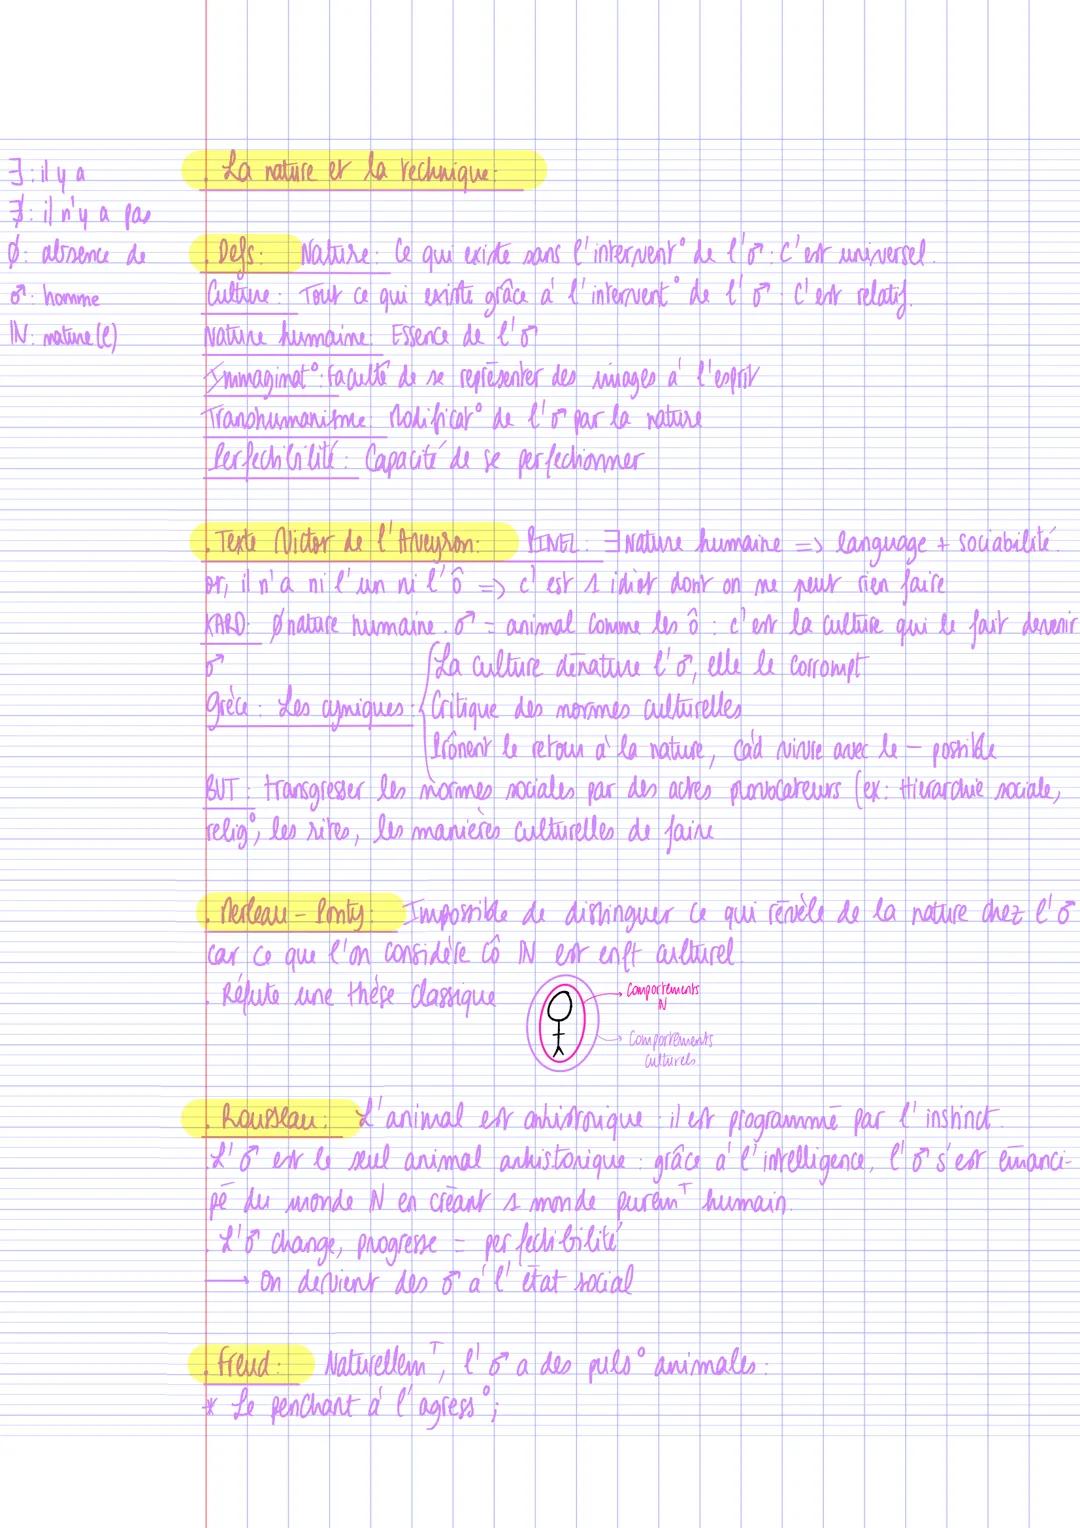 ∃ : il y a
∄ : il n'y a pas
Ø : absence de
♂ : homme
IN : nature(l)
. La nature et la technique :
. Defs : Nature : Ce qui existe sans l'intervent° de l'♂ : c'est universel.
Culture : Tout ce qui existe grâce à l'intervent° de l'♂ : c'est relatif.
Nature humaine : Essence de l'♂
Immaginat° : faculté de se représenter des images à l'esprit
Transhumanisme : Modificat° de l'♂ par la nature
Perfectibilité : Capacité de se perfectionner
. Texte Victor de l'Aveyron : PINEL : ∃ Nature humaine => language + sociabilité.
or, il n'a ni l'un ni l'ô => c'est 1 idiot dont on ne peut rien faire
KARD : Ø nature humaine. ♂ = animal comme les ô : c'est la culture qui le fait devenir
♂
Grèce : Les cyniques :
La culture dénature l'♂, elle le corrompt
Critique des normes culturelles
Prônent le retour à la nature, càd vivre avec le – possible
BUT : transgresser les normes sociales par des actes provocateurs (ex : Hierarchie sociale,
relig°, les rites, les manières culturelles de faire
. Merleau-Ponty : Impossible de distinguer ce qui rêvèle de la nature chez l'♂
car ce que l'on considère cô IN est enft culturel
. Réfute une thèse classique
Comportements
IN
Comportements
culturels
. Rousseau : L'animal est anhistorique : il est programmé par l'instinct.
. L'♂ est le seul animal anhistorique : grâce à l'intelligence, l'♂ s'est émanci-
pé du monde IN en créant 1 monde puremT humain.
. L'♂ change, progresse = perfectibilité
→ On devient des ♂ à l'état social
. Freud : NaturellemT, l'♂ a des puls° animales :
* Le penchant à l'agress° ;